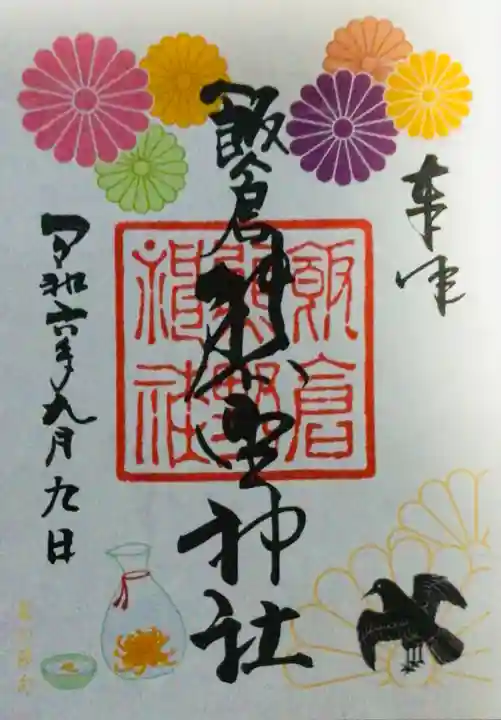 奉拝
飯倉熊野神社
飯倉
熊野
神社
令和六年九月九日